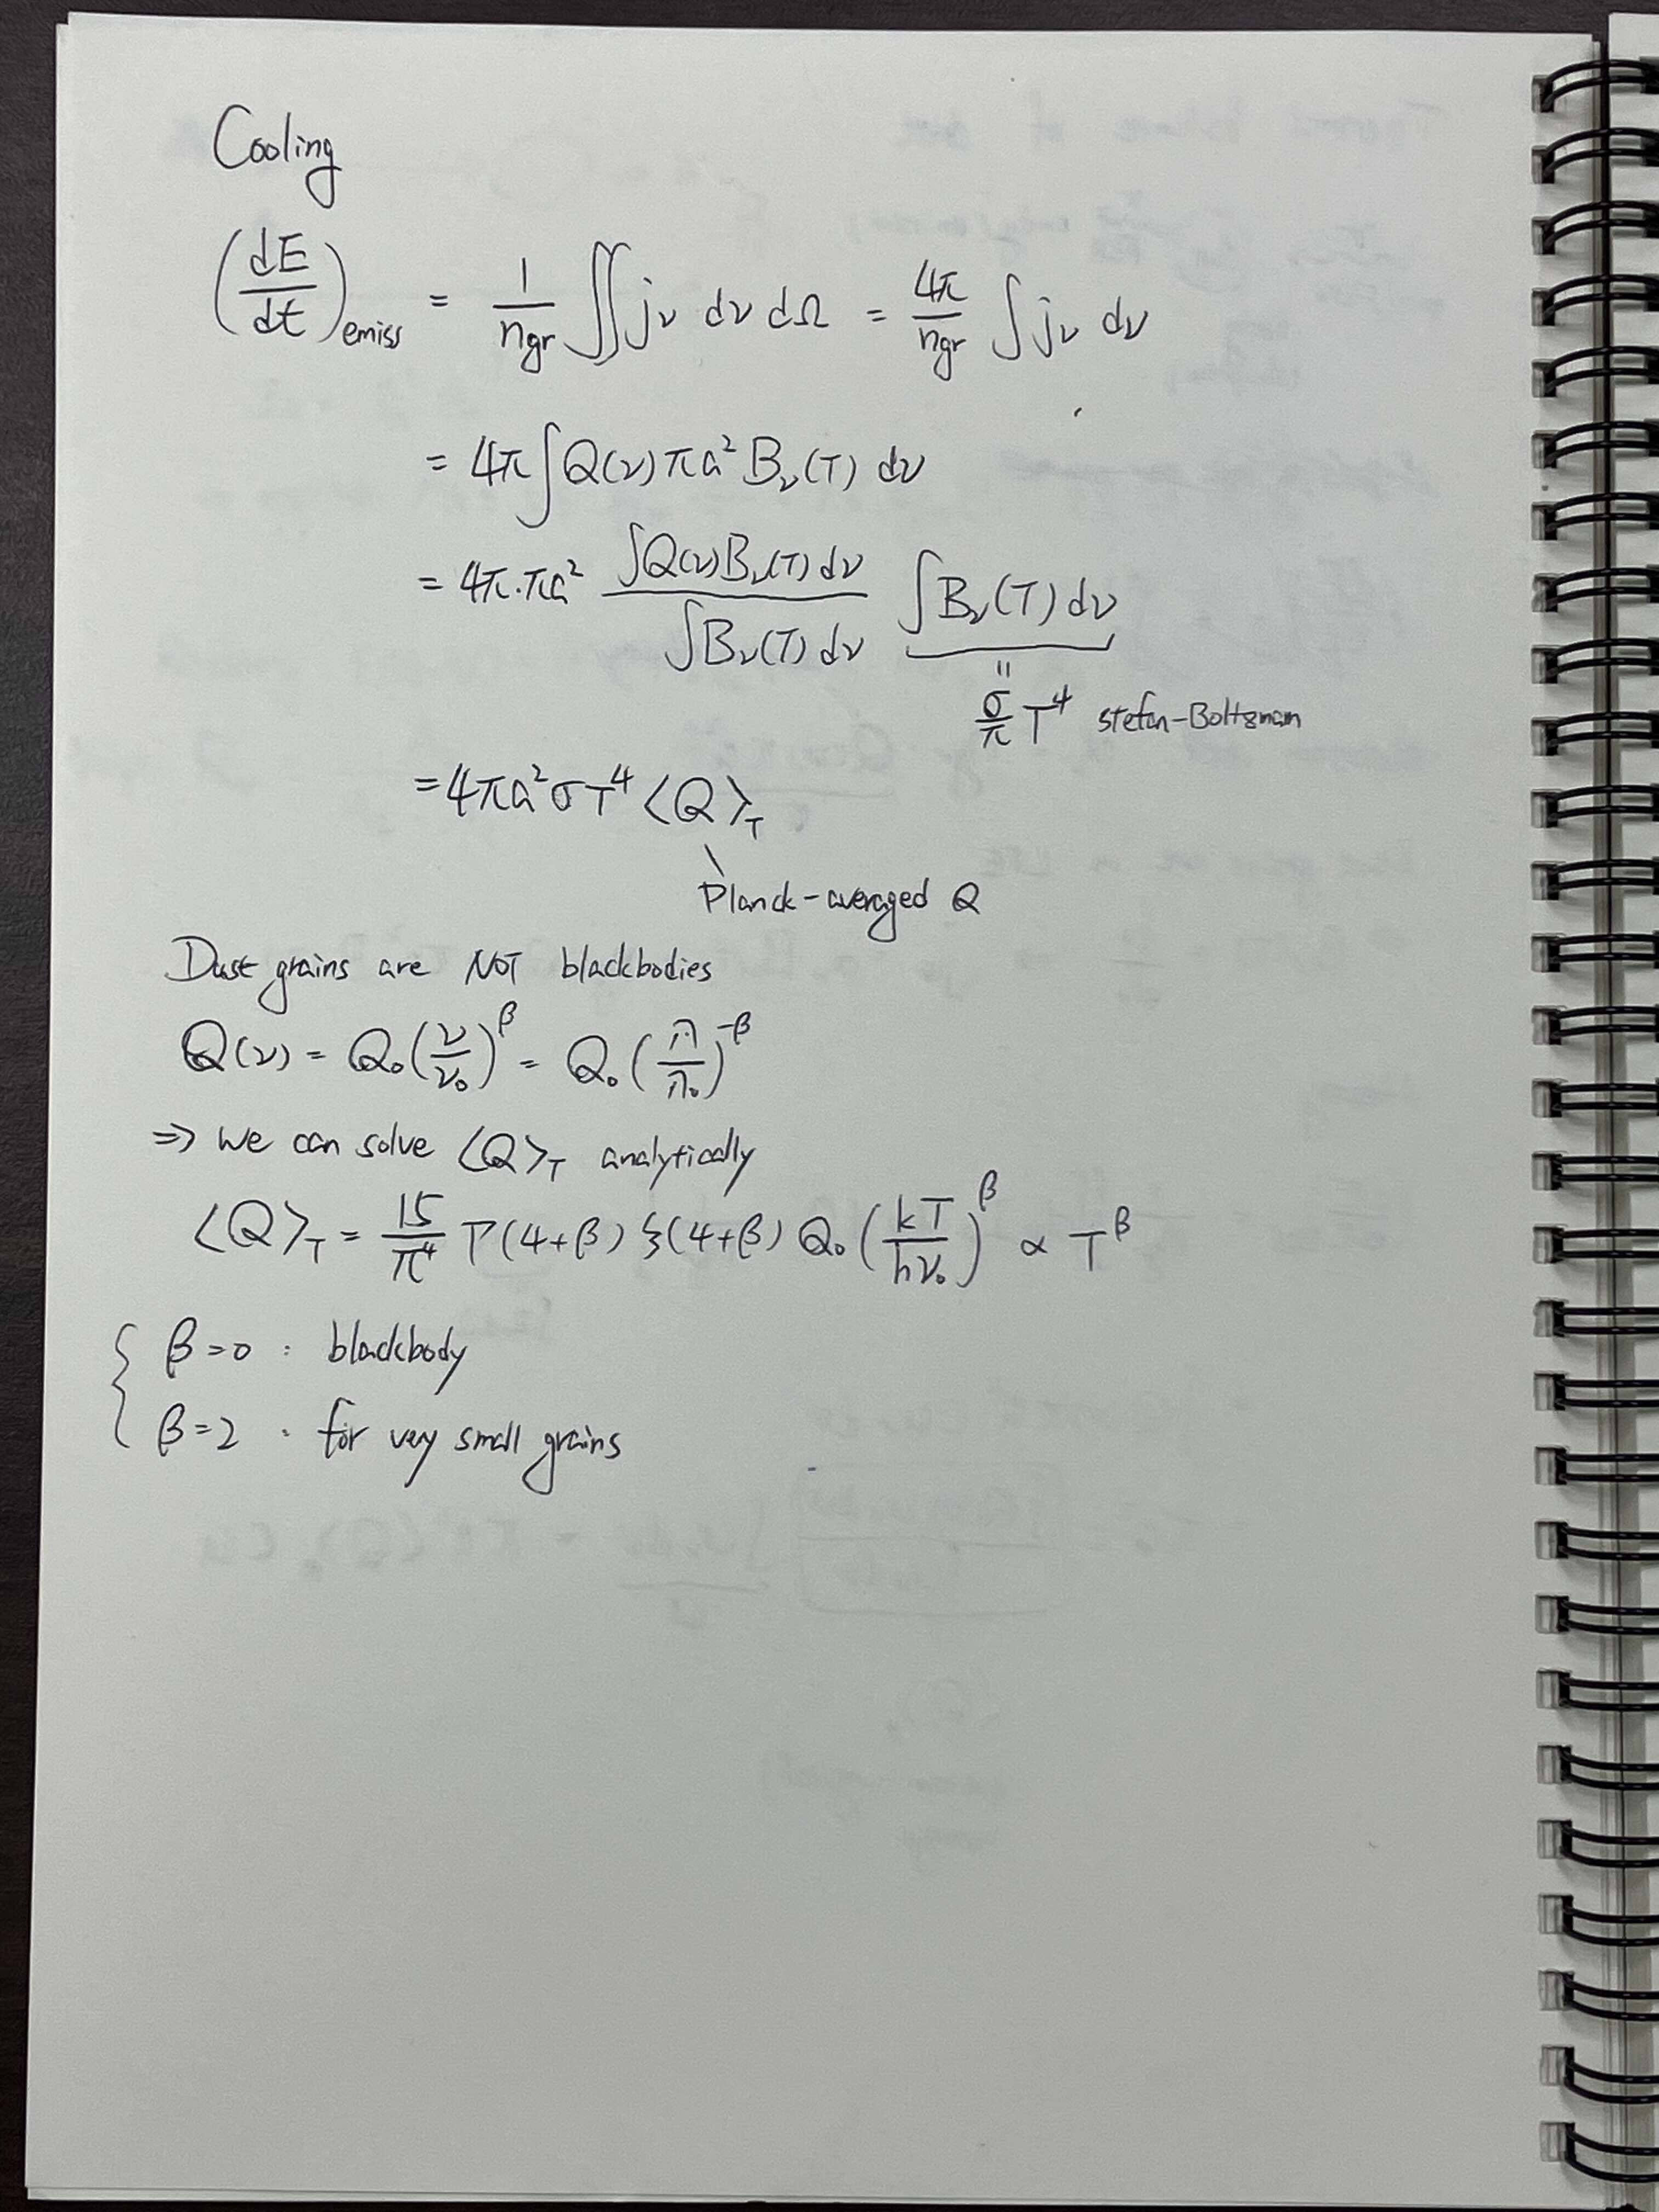 Cooling
(dE/dt)emiss = 1/ngr ∬ jν dν dΩ = 4π/ngr ∫ jν dν
= 4π ∫ Q(ν) πa² Bν(T) dν
= 4π·πa² ∫Q(ν)Bν(T)dν / ∫Bν(T)dν ∫Bν(T)dν
=
σ/π T⁴ stefan-Boltzmann
= 4πa²σT⁴ <Q>T
Planck-averaged Q
Dust grains are NOT blackbodies
Q(ν) = Q₀(ν/ν₀)^β = Q₀(λ/λ₀)^-β
⇒ we can solve <Q>T analytically
<Q>T = 15/π⁴ Γ(4+β) ζ(4+β) Q₀ (kT/hν₀)^β ∝ T^β
{ β=0 : blackbody
β=2 : for very small grains